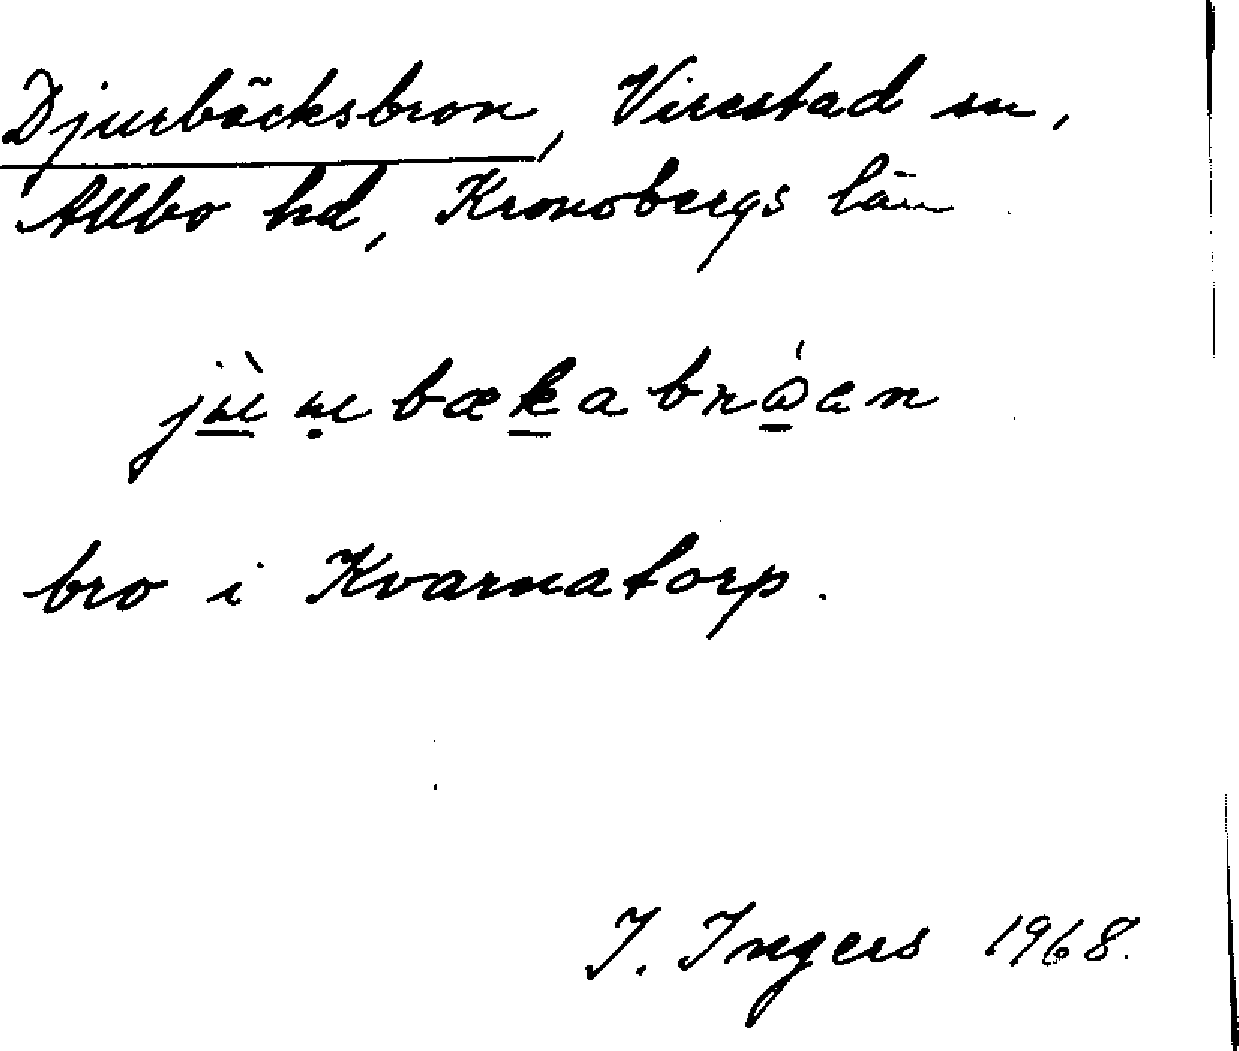 Djurbäcksbron, Virestad sn,
Allbo hd, Kronobergs län
bro i Kvarnatorp.
I. Ingers 1968.